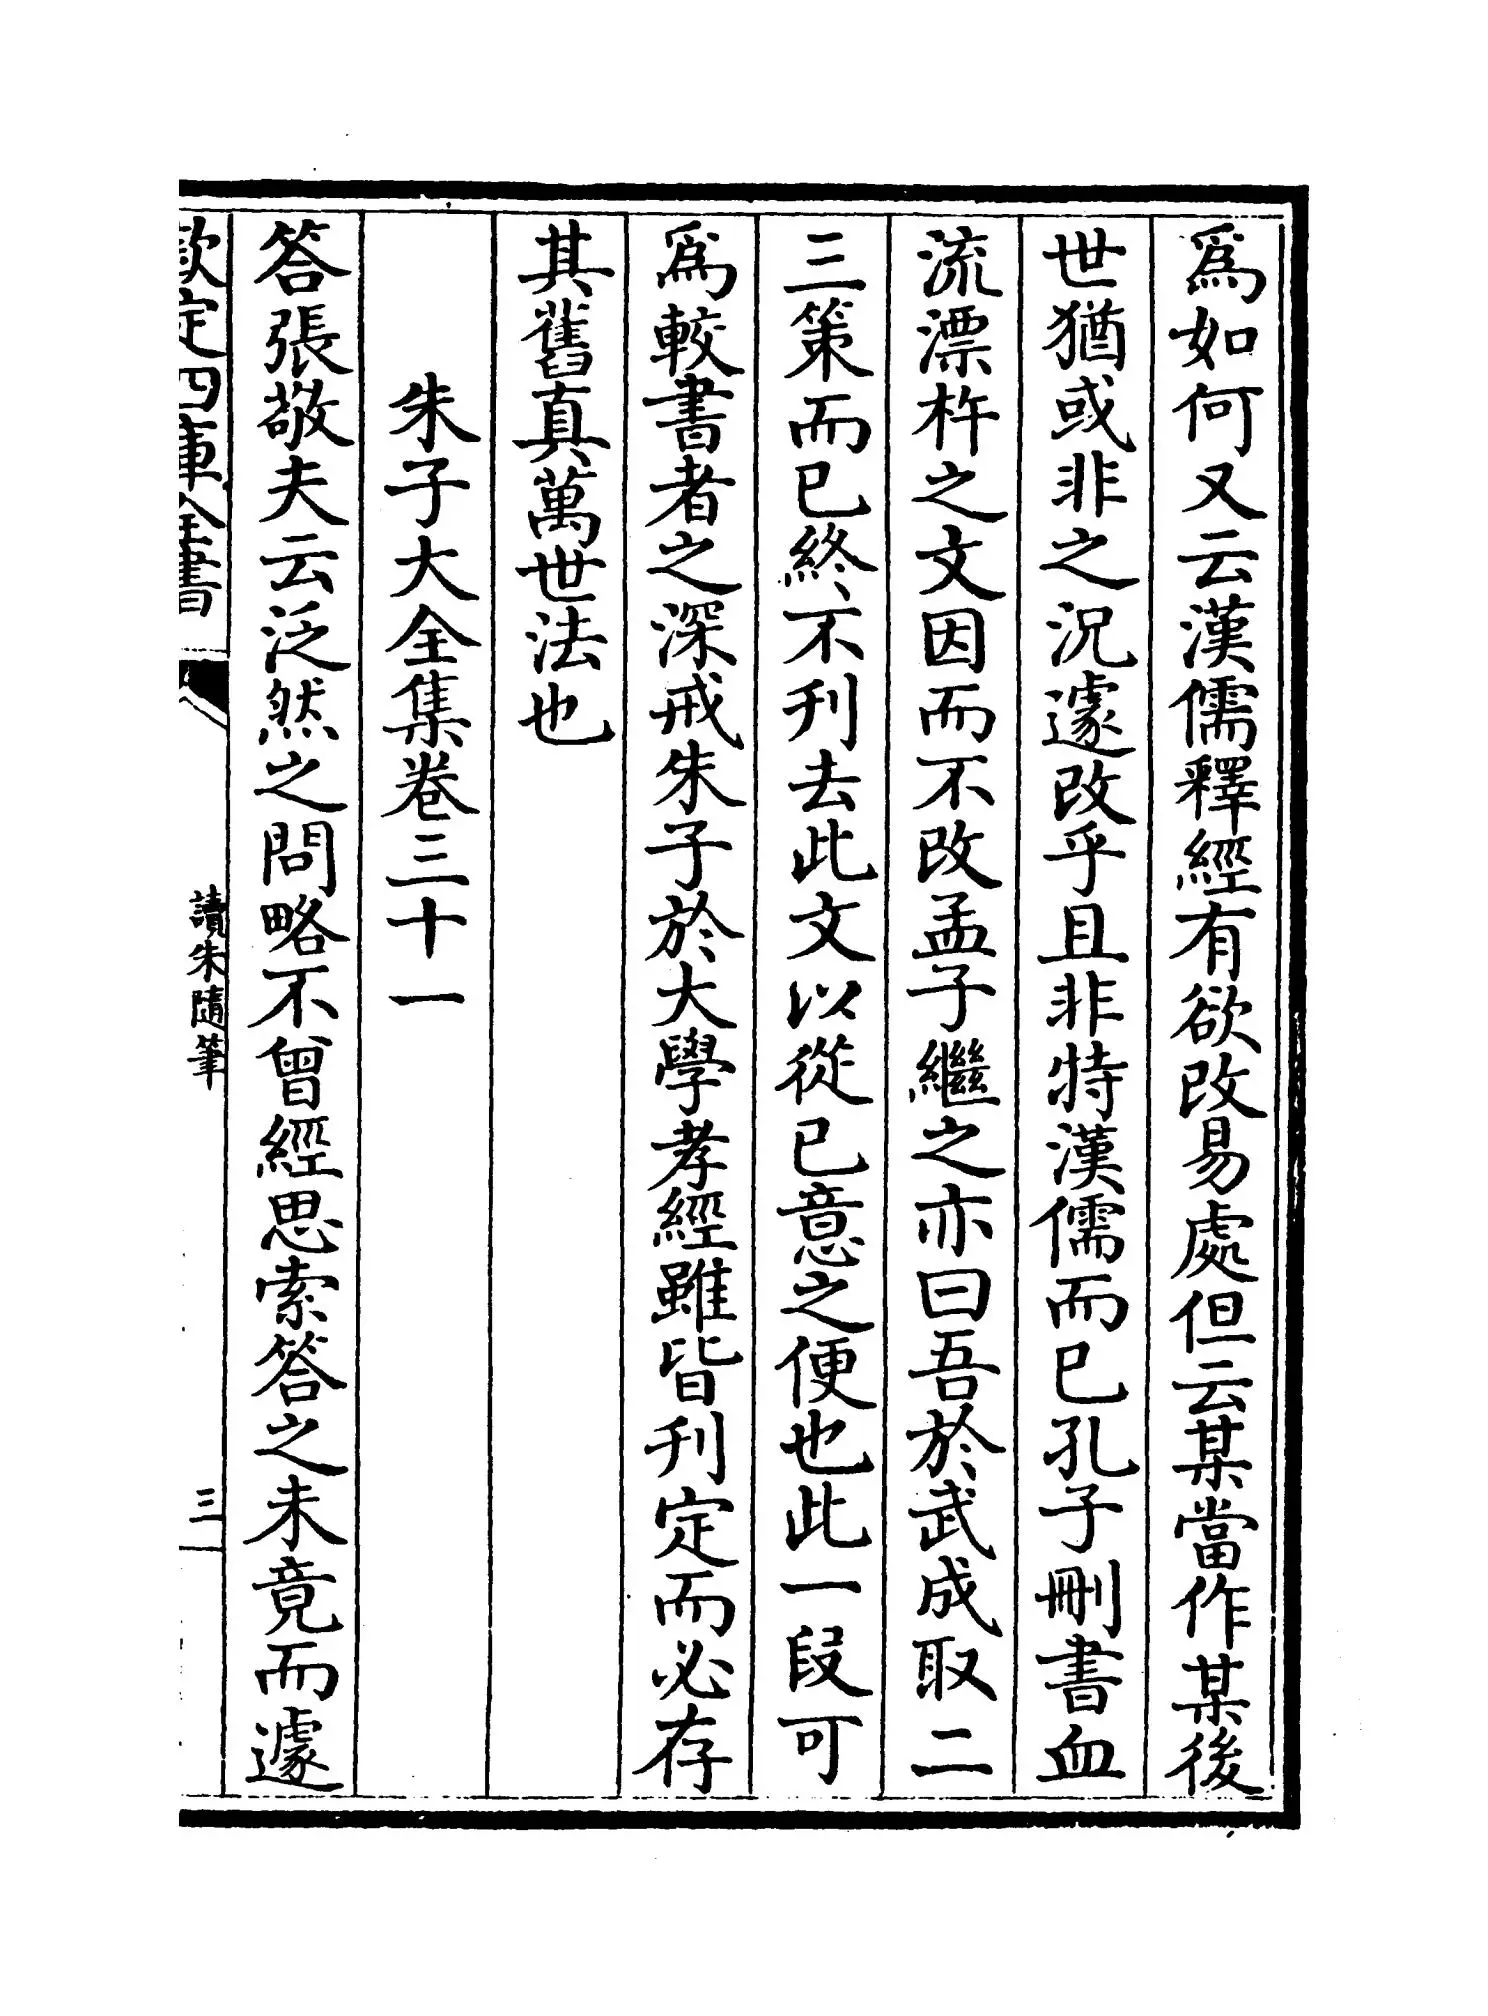 爲如何又云漢儒釋經有欲改易處但云某當作某後
世猶或非之況遽改乎且非特漢儒而已孔子刪書血
流漂杵之文因而不改孟子繼之亦曰吾於武成取二
三策而已終不刋去此文以從已意之便也此一段可
爲較書者之深戒朱子於大學孝經雖皆刋定而必存
其舊真萬世法也
朱子大全集卷三十一
答張敬夫云泛然之問略不曾經思索答之未竟而遽
欽定四庫全書
讀朱隨筆
三